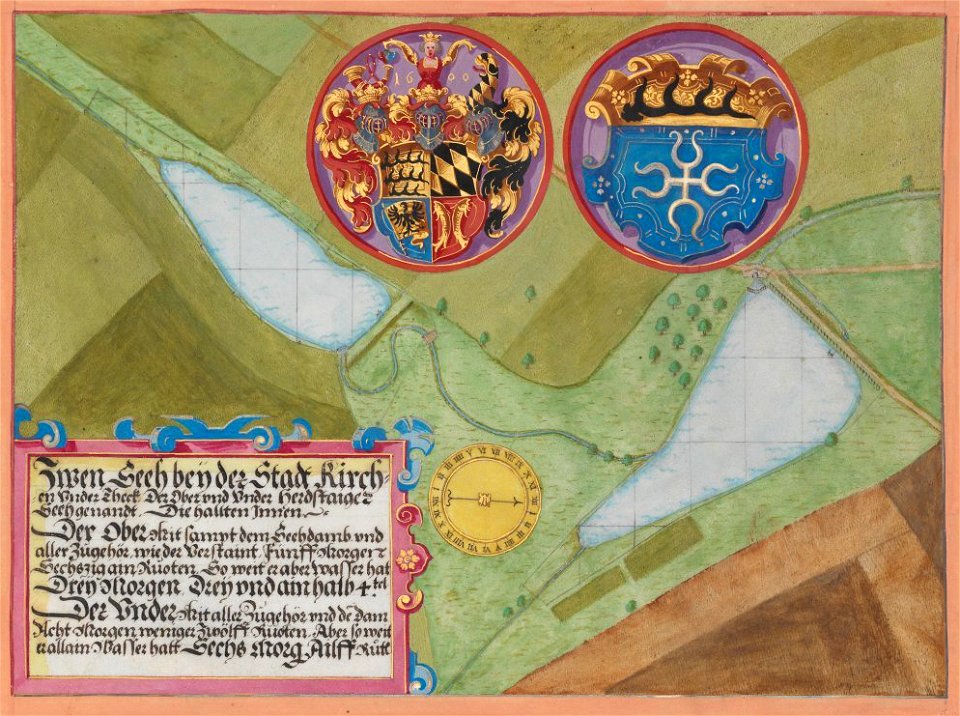 1600
Zwen Seeh bey der Stad Kirch-
en Vnder Theck Der Ober vnd Vnder Herdstaiger
Seeh genandt. Die hallten Innen.
Der Ober Mit sampt dem Seehdamb vnd
aller Zugehör, wie der Verstaint Fünff Morgen
Sechszig ain Ruoten, So weit er aber Wasser hat
Dreÿ Morgen, Dreÿ vnd ain halb 4.tel
Der Vnder Mit aller Zugehör vnd dē Dam
Acht Morgen weniger Zwölff Ruoten, Aber so weit
er allain Wasser hatt Sechs Morg Ailff Rutt